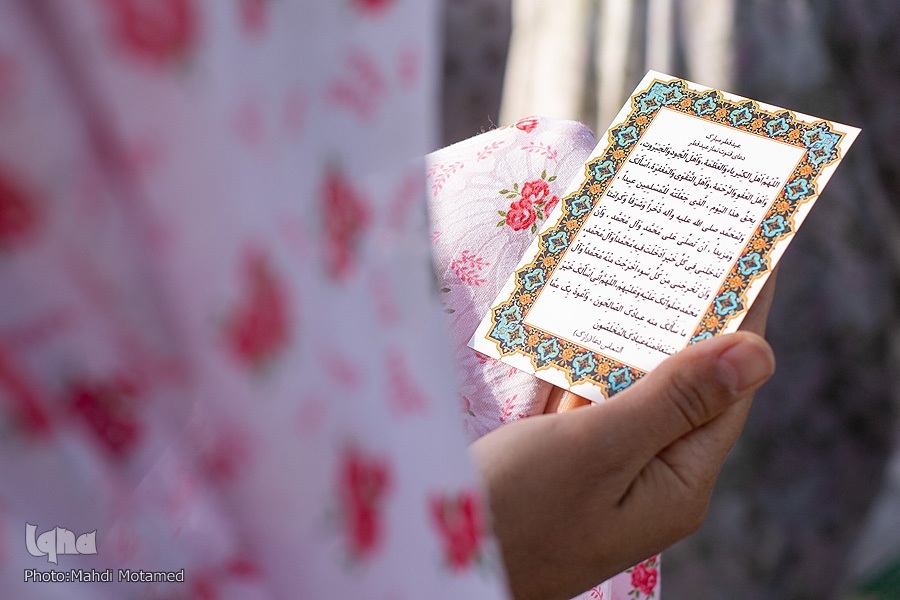 عید فطر مبارک
دعای قنوت نماز عید فطر
اللهم اهل الکبریاء والعظمة، واهل الجود والجبروت
واهل العفو والرحمة، واهل التقوی والمغفرة، اسألک
بحق هذا الیوم، الذی جعلته للمسلمین عیدا
ولمحمد صلی الله علیه وآله ذخرا وشرفا وکرامتا
ومزیدا، أن تصلی علی محمد وآل محمد، وأن
تدخلنی فی کل خیر أدخلت فیه محمدا وآل محمد
وأن تخرجنی من کل سوء أخرجت منه محمدا وآل
محمد صلواتک علیه وعلیهم اللهم إنی أسألک خیر
ما سألک منه عبادک الصالحون. وأعوذ بک مما
منه عبادک المخلصون
التماس دعا
Iqna
Photo:Mahdi Motamed